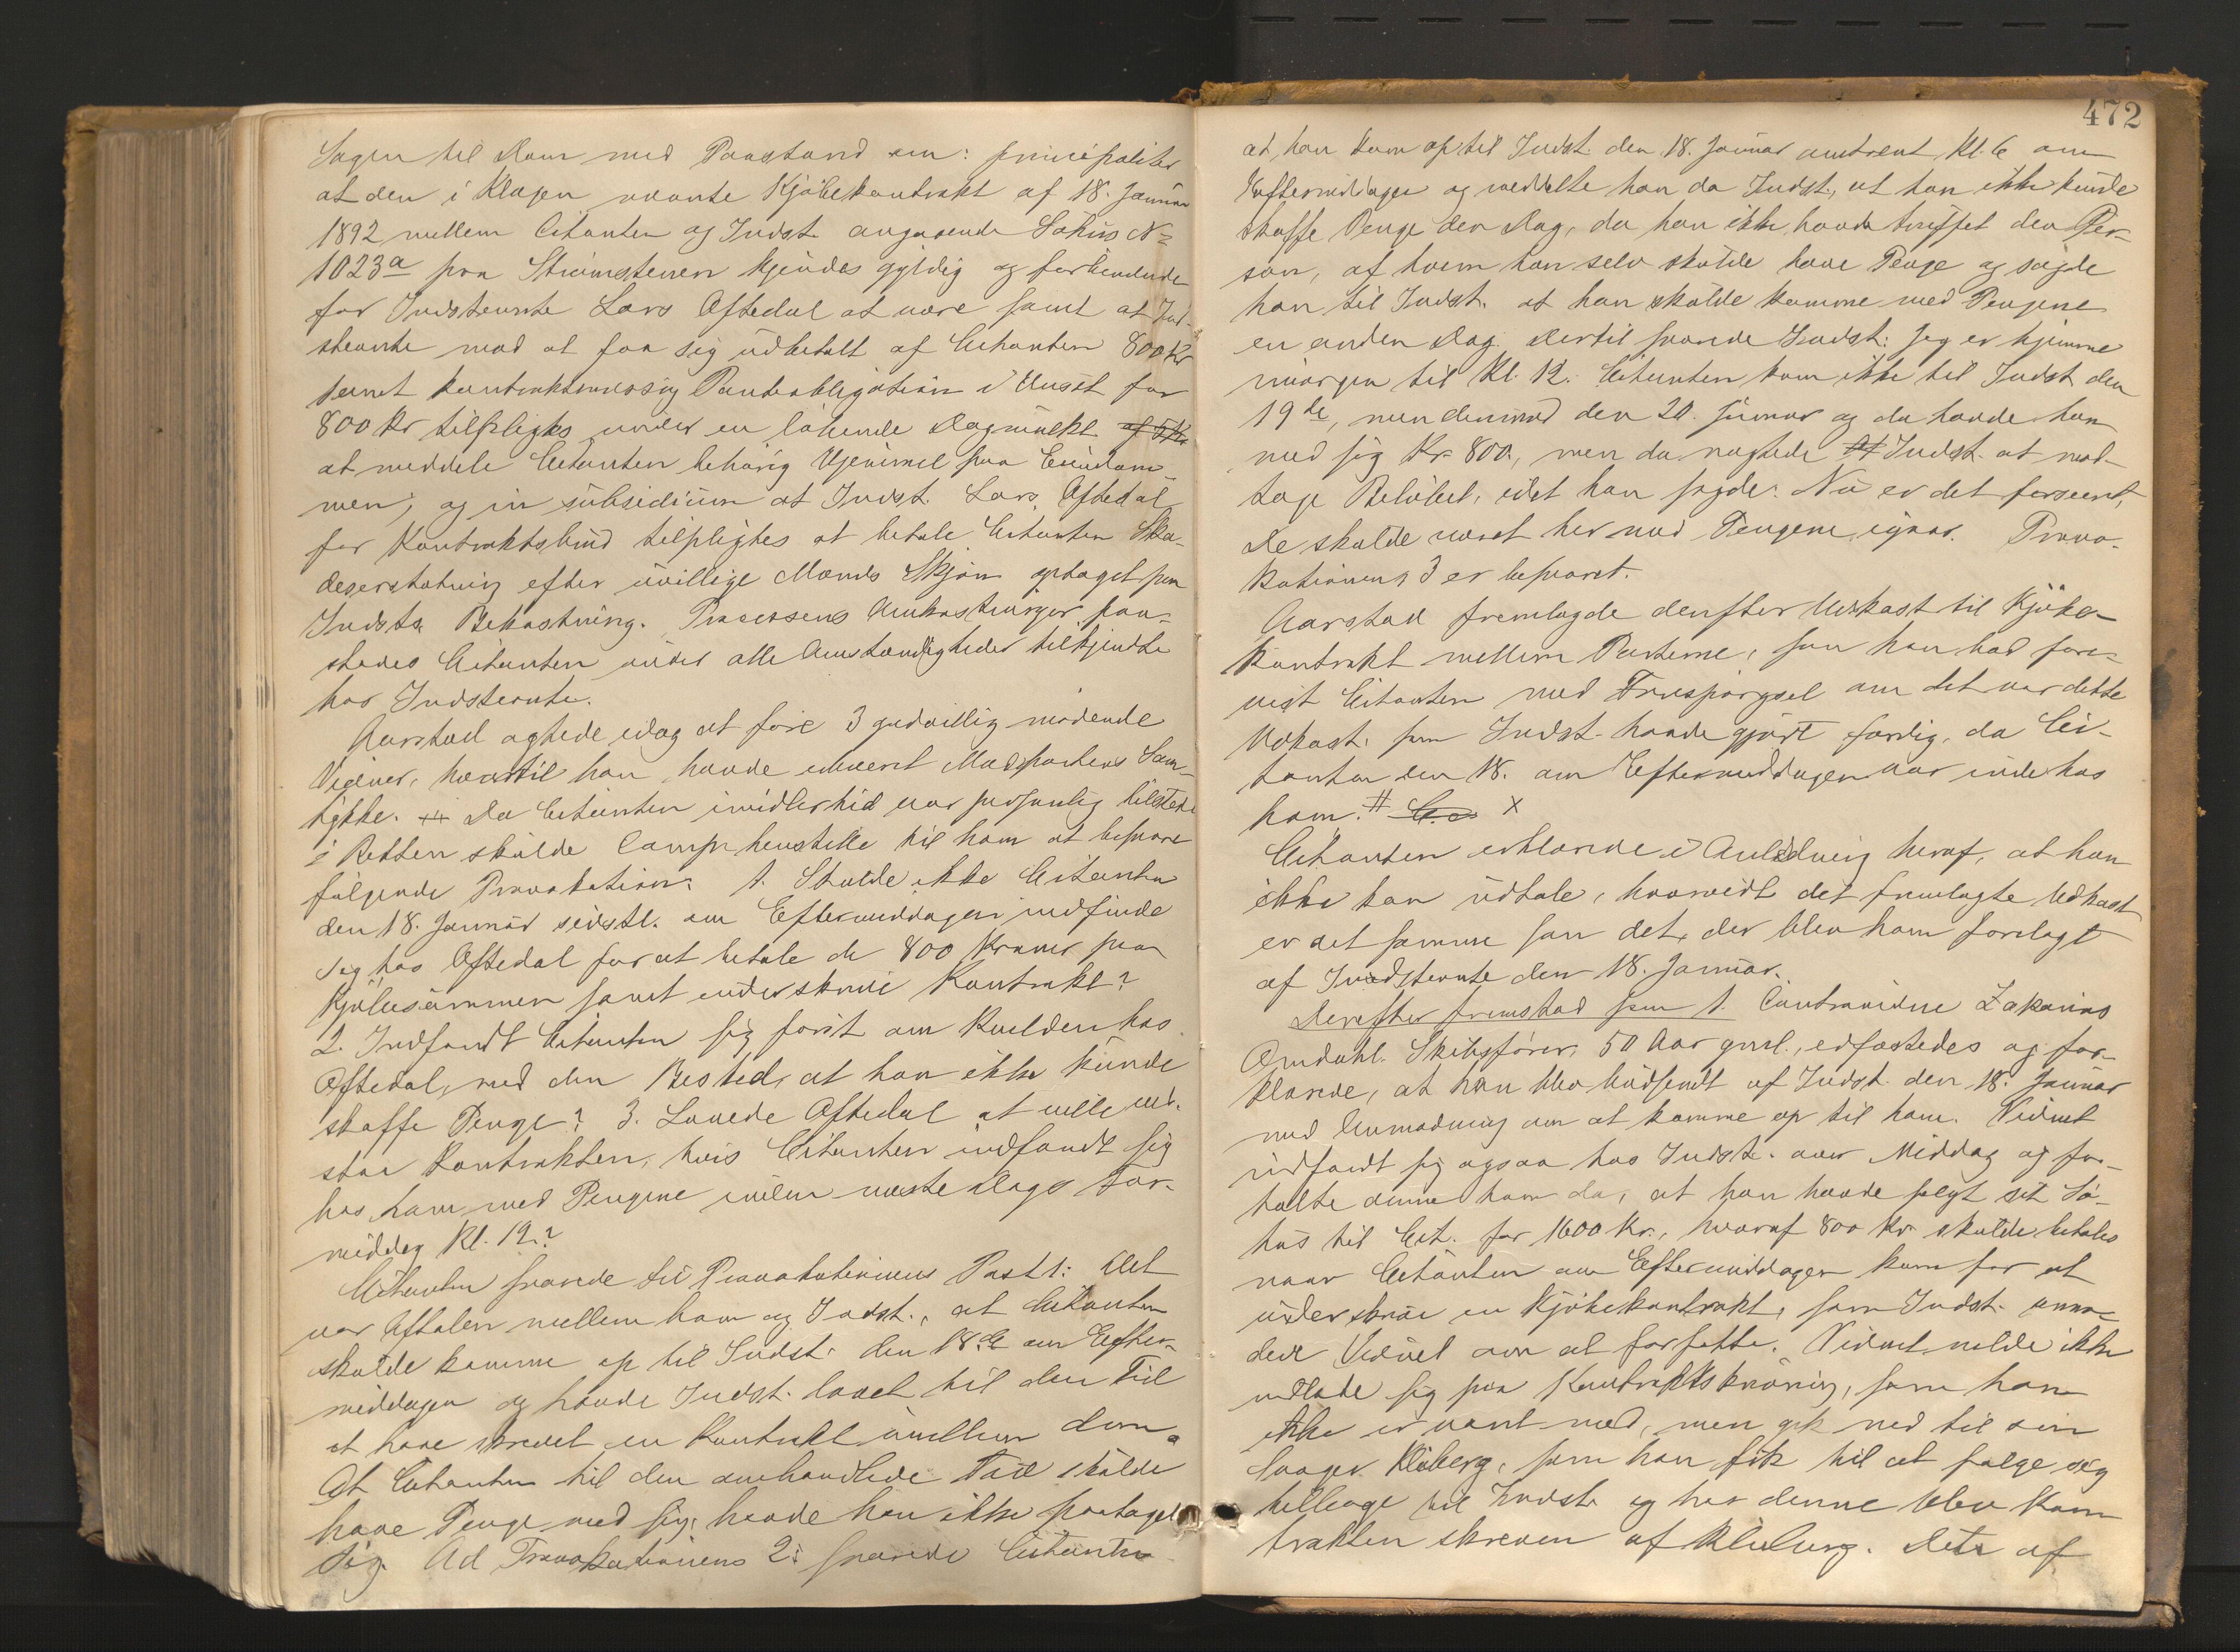 Sagen til Dom med Paastand om: principaliter
at den i Klagen nævnte Kjöbekontrakt af 18. Januar
1892 mellem Citanten og Indst. angaaende Söhus No
1023a paa Strömstenen kjendes gyldig og forbindende
for Indstevnte Lars Aftedal at være samt at Ind-
stevnte mod at faa sig udbetalt af Citanten 800 Kr
samt kontraktmæssig Panteobligation i Huset for
800 Kr tilpligtes under en löbende Dagmulkt af 5 Kr
at meddele Citanten behörig Hjemmel paa Eiendom-
men; og in subsidium at Indst. Lars Aftedal
for Kontraktsbrud tilpligtes at betale Citanten Ska-
deserstatning efter uvillige Mænds Skjön optaget paa
Indsts Bekostning. Processens Omkostninger paa-
stodes Citanten under alle Omstændigheder tilkjendte
hos Indstevnte.
Aarstad agtede idag at före 3 godvillig mödende
Vidner, hvortil han havde erhvervet Modpartens Sam-
tykke. Da Citanten imidlertid var personlig tilstede
i Retten skulde Comp. henstille til ham at besvare
fölgende Provokation: 1. Skulde ikke Citanten
den 18. Januar sidstl. om Eftermiddagen indfinde
sig hos Aftedal for at betale de 800 Kroner paa
Kjöbesummen samt underskrive Kontrakt?
2. Indfandt Citanten sig först om Kvelden hos
Aftedal, med den Besked, at han ikke kunde
skaffe Penge? 3. Lovede Aftedal at ville ved-
staa Kontrakten, hvis Citanten indfandt sig
hos ham med Pengene inden næste Dags For-
middag Kl. 12?
Citanten svarede til Provokationens Post 1: Det
var Aftalen mellem ham og Indst., at Citanten
skulde komme op til Indst. den 18de om Efter-
middagen og havde Indst. lovet til den Tid
at have skrevet en Kontrakt imellem dem.
At Citanten til den omhandlede Tid skulde
have Penge med sig, havde han ikke paataget
sig. Ad Provokationens 2: svarede Citanten
472
at han kom op til Indst. den 18. Januar omtrent Kl. 6 om
Eftermiddagen og meddelte han da Indst., at han ikke kunde
skaffe Penge den Dag, da han ikke havde truffet den Per-
son, af hvem han selv skulde have Penge og sagde
han til Indst. at han skulde komme med Pengene
en anden Dag. Dertil svarede Indst.: Jeg er hjemme
imorgen til Kl. 12. Citanten kom ikke til Indst. den
19de, men derimod den 20. Januar og da havde han
med sig Kr. 800, men da nægtede Indst. at mod-
tage Belöbet, idet han sagde: Nu er det forseent,
De skulde været her med Pengene igaar. Provo-
kationens 3 er besvaret.
Aarstad fremlagde derefter Udkast til Kjöbe-
kontrakt mellem Parterne, som han bad fore-
vist Citanten med Forespörgsel om det var dette
Udkast, som Indst. havde gjort færdig, da Ci-
tanten den 18. om Eftermiddagen var inde hos
ham. # x
Citanten erklærede i Anledning heraf, at han
ikke kan udtale, hvorvidt det fremlagte Udkast
er det samme som det, der blev ham forelagt
af Indstevnte den 18. Januar.
Derefter fremstod som 1. Contravidne Zakarias
Omdahl. Skibsförer, 50 Aar gml., edfæstedes og for-
klarede, at han blev budsendt af Indst. den 18. Januar
med Anmodning om at komme op til ham. Vidnet
indfandt sig ogsaa hos Indst. over Middag og for-
talte denne ham da, at han havde solgt sit Sö-
hus til Cit. for 1600 Kr., hvoraf 800 Kr skulde betales
naar Citanten om Eftermiddagen kom for at
underskrive en Kjöbekontrakt, som Indst. anmo-
dede Vidnet om at forfatte. Vidnet vilde ikke
indlade sig paa Kontraktskrivning, som han
ikke er vant med, men gik ned til sin
Svoger Kluberg, som han fik til at fölge sig
tilbage til Indst. og hos denne blev Kon-
trakten skreven af Kluberg. Det er af